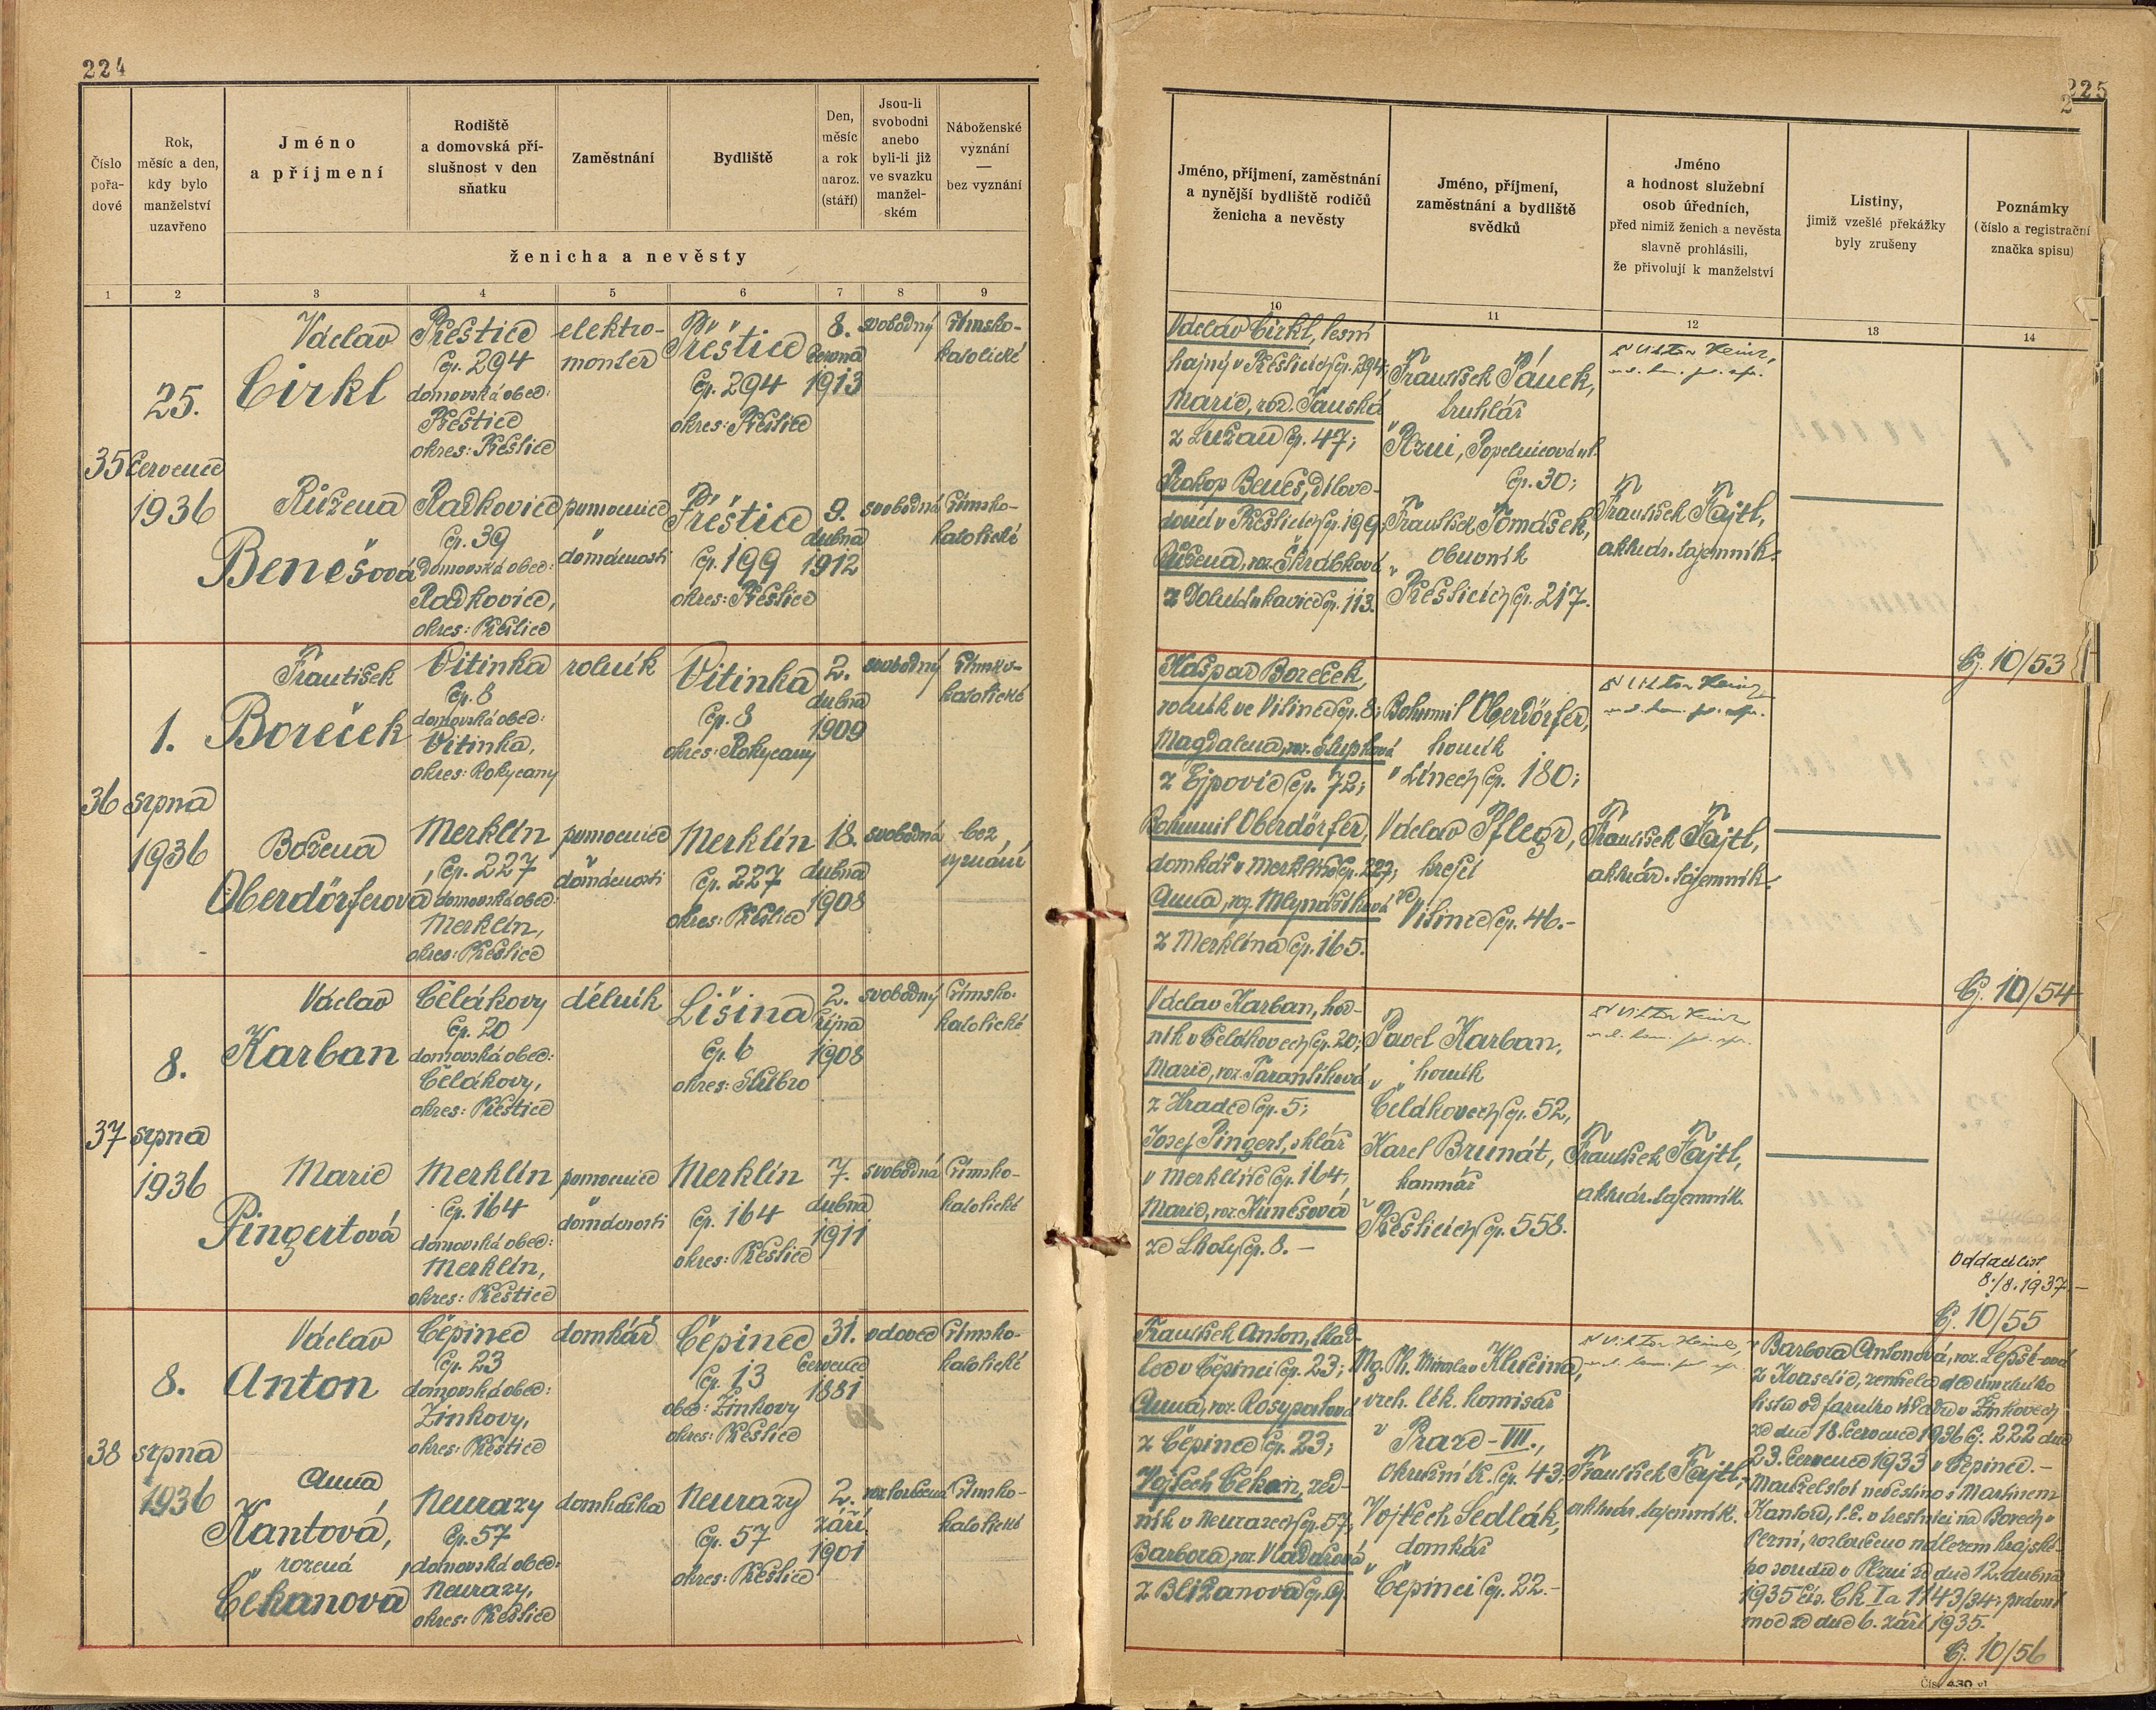 224
Číslo
pořa-
dové
Rok,
měsíc a den,
kdy bylo
manželství
uzavřeno
Jméno
a příjmení
Rodiště
a domovská pří-
slušnost v den
sňatku
Zaměstnání
Bydliště
Den,
měsíc
a rok
naroz.
(stáří)
Jsou-li
svobodni
anebo
byli-li již
ve svazku
manžel-
ském
Náboženské
vyznání
—
bez vyznání
ženicha a nevěsty
1 2 3 4 5 6 7 8 9
35
25.
července
1936
Václav
Cirkl
Přeštice
čp. 294
domovská obec:
Přeštice
okres: Přeštice
elektro-
montér
Přeštice
čp. 294
okres: Přeštice
8.
června
1913
svobodný
římsko-
katolické
Růžena
Benešová
Radkovice
čp. 39
domovská obec:
Radkovice,
okres: Přeštice
pomocnice
v
domácnosti
Přeštice
čp. 199
okres: Přeštice
9.
dubna
1912
svobodná
římsko-
katolické
36
1.
srpna
1936
František
Boreček
Vitinka
čp. 8
domovská obec:
Vitinka,
okres: Rokycany
rolník
Vitinka
čp. 8
okres: Rokycany
2.
dubna
1909
svobodný
římsko-
katolické
Božena
Oberdörferová
Merklín
čp. 227
domovská obec:
Merklín,
okres: Přeštice
pomocnice
v
domácnosti
Merklín
čp. 227
okres: Přeštice
18.
dubna
1908
svobodná
bez
vyznání
37
8.
srpna
1936
Václav
Karban
Čelákovy
čp. 20
domovská obec:
Čelákovy,
okres: Přeštice
dělník
Lišina
čp. 6
okres: Stříbro
2.
října
1908
svobodný
římsko-
katolické
Marie
Pingertová
Merklín
čp. 164
domovská obec:
Merklín,
okres: Přeštice
pomocnice
v
domácnosti
Merklín
čp. 164
okres: Přeštice
7.
dubna
1911
svobodná
římsko-
katolické
38
8.
srpna
1936
Václav
Anton
Čepinec
čp. 23
domovská obec:
Žinkovy,
okres: Přeštice
domkář
Čepinec
čp. 13
obec: Žinkovy
okres: Přeštice
31.
července
1881
vdovec
římsko-
katolické
Anna
Kantová,
rozená
Čekanová
Neurazy
čp. 57
domovská obec:
Neurazy,
okres: Přeštice
domkářka
Neurazy
čp. 57
okres: Přeštice
2.
září
1901
rozloučená
římsko-
katolické
225
2
Jméno, příjmení, zaměstnání
a nynější bydliště rodičů
ženicha a nevěsty
Jméno, příjmení,
zaměstnání a bydliště
svědků
Jméno
a hodnost služební
osob úředních,
před nimiž ženich a nevěsta
slavně prohlásili,
že přivolují k manželství
Listiny,
jimiž vzešlé překážky
byly zrušeny
Poznámky
(číslo a registrační
značka spisu)
10 11 12 13 14
Václav Cirkl, lesní
hajný v Přešticích čp. 294;
Marie, roz. Tauská
z Lužan čp. 47;
Prokop Beneš, dílove-
doucí v Přešticích čp. 199;
Růžena, roz. Škrábková
z Dolní Lukavice čp. 113.
František Pánek,
truhlář
v Plzni, Popelnicová ul.
čp. 30;
František Tomášek,
obuvník
v Přešticích čp. 217.
František Fajtl,
aktuár. tajemník.
Čj. 10/53
Kašpar Boreček,
rolník ve Vitince čp. 8;
Magdalena, roz. Šlupková
z Ejpovic čp. 72;
Bohumil Oberdörfer,
domkář v Merklíně čp. 227;
Anna, roz. Mlynaříková
z Merklína čp. 165.
Bohumil Oberdörfer,
horník
v Línech čp. 180;
Václav Pflegr,
krejčí
ve Vitince čp. 46.-
František Fajtl,
aktuár. tajemník.
Čj. 10/54
Václav Karban, hor-
ník v Čelákovech čp. 20;
Marie, roz. Tarantíková
z Hradce čp. 5;
Josef Pingert, sklář
v Merklíně čp. 164,
Marie, roz. Kunešová
ze Lhoty čp. 8. –
Pavel Karban,
horník
v Čelákovech čp. 52,
Karel Brunát,
kamnář
v Přešticích čp. 558.
František Fajtl,
aktuár. tajemník.
Oddací list
8./8. 1937.–
Čj. 10/55
František Anton, tkad-
lec v Čepinci čp. 23;
Anna, roz. Rosyparlová
z Čepince čp. 23;
Vojtěch Čekan, zed-
ník v Neurazech čp. 57;
Barbora, roz. Vladařová
z Bližanova čp. 9.
Mg. Ph. Miroslav Klučina,
vrch. lék. komisař
v Praze-VII.,
čp. 43.
Vojtěch Sedlák,
domkář
v Čepinci čp. 22.-
František Fajtl,
aktuár. tajemník.
Barbora Antonová,
listu od farního úřadu v Žinkovech
ze dne 18. července 1936 čj. 222 dne
23. července 1933 v Čepinci.-
Manželství nevěstino s Martinem
Kantorem, t.č. v trestnici na Borech v
Plzni, rozloučeno nálezem krajské-
ho soudu v Plzni ze dne 12. dubna
1935 čís. Ck I a 1143/34; právní
moc ze dne 6. září 1935.
Čj. 10/56
Čís. 430 vl.